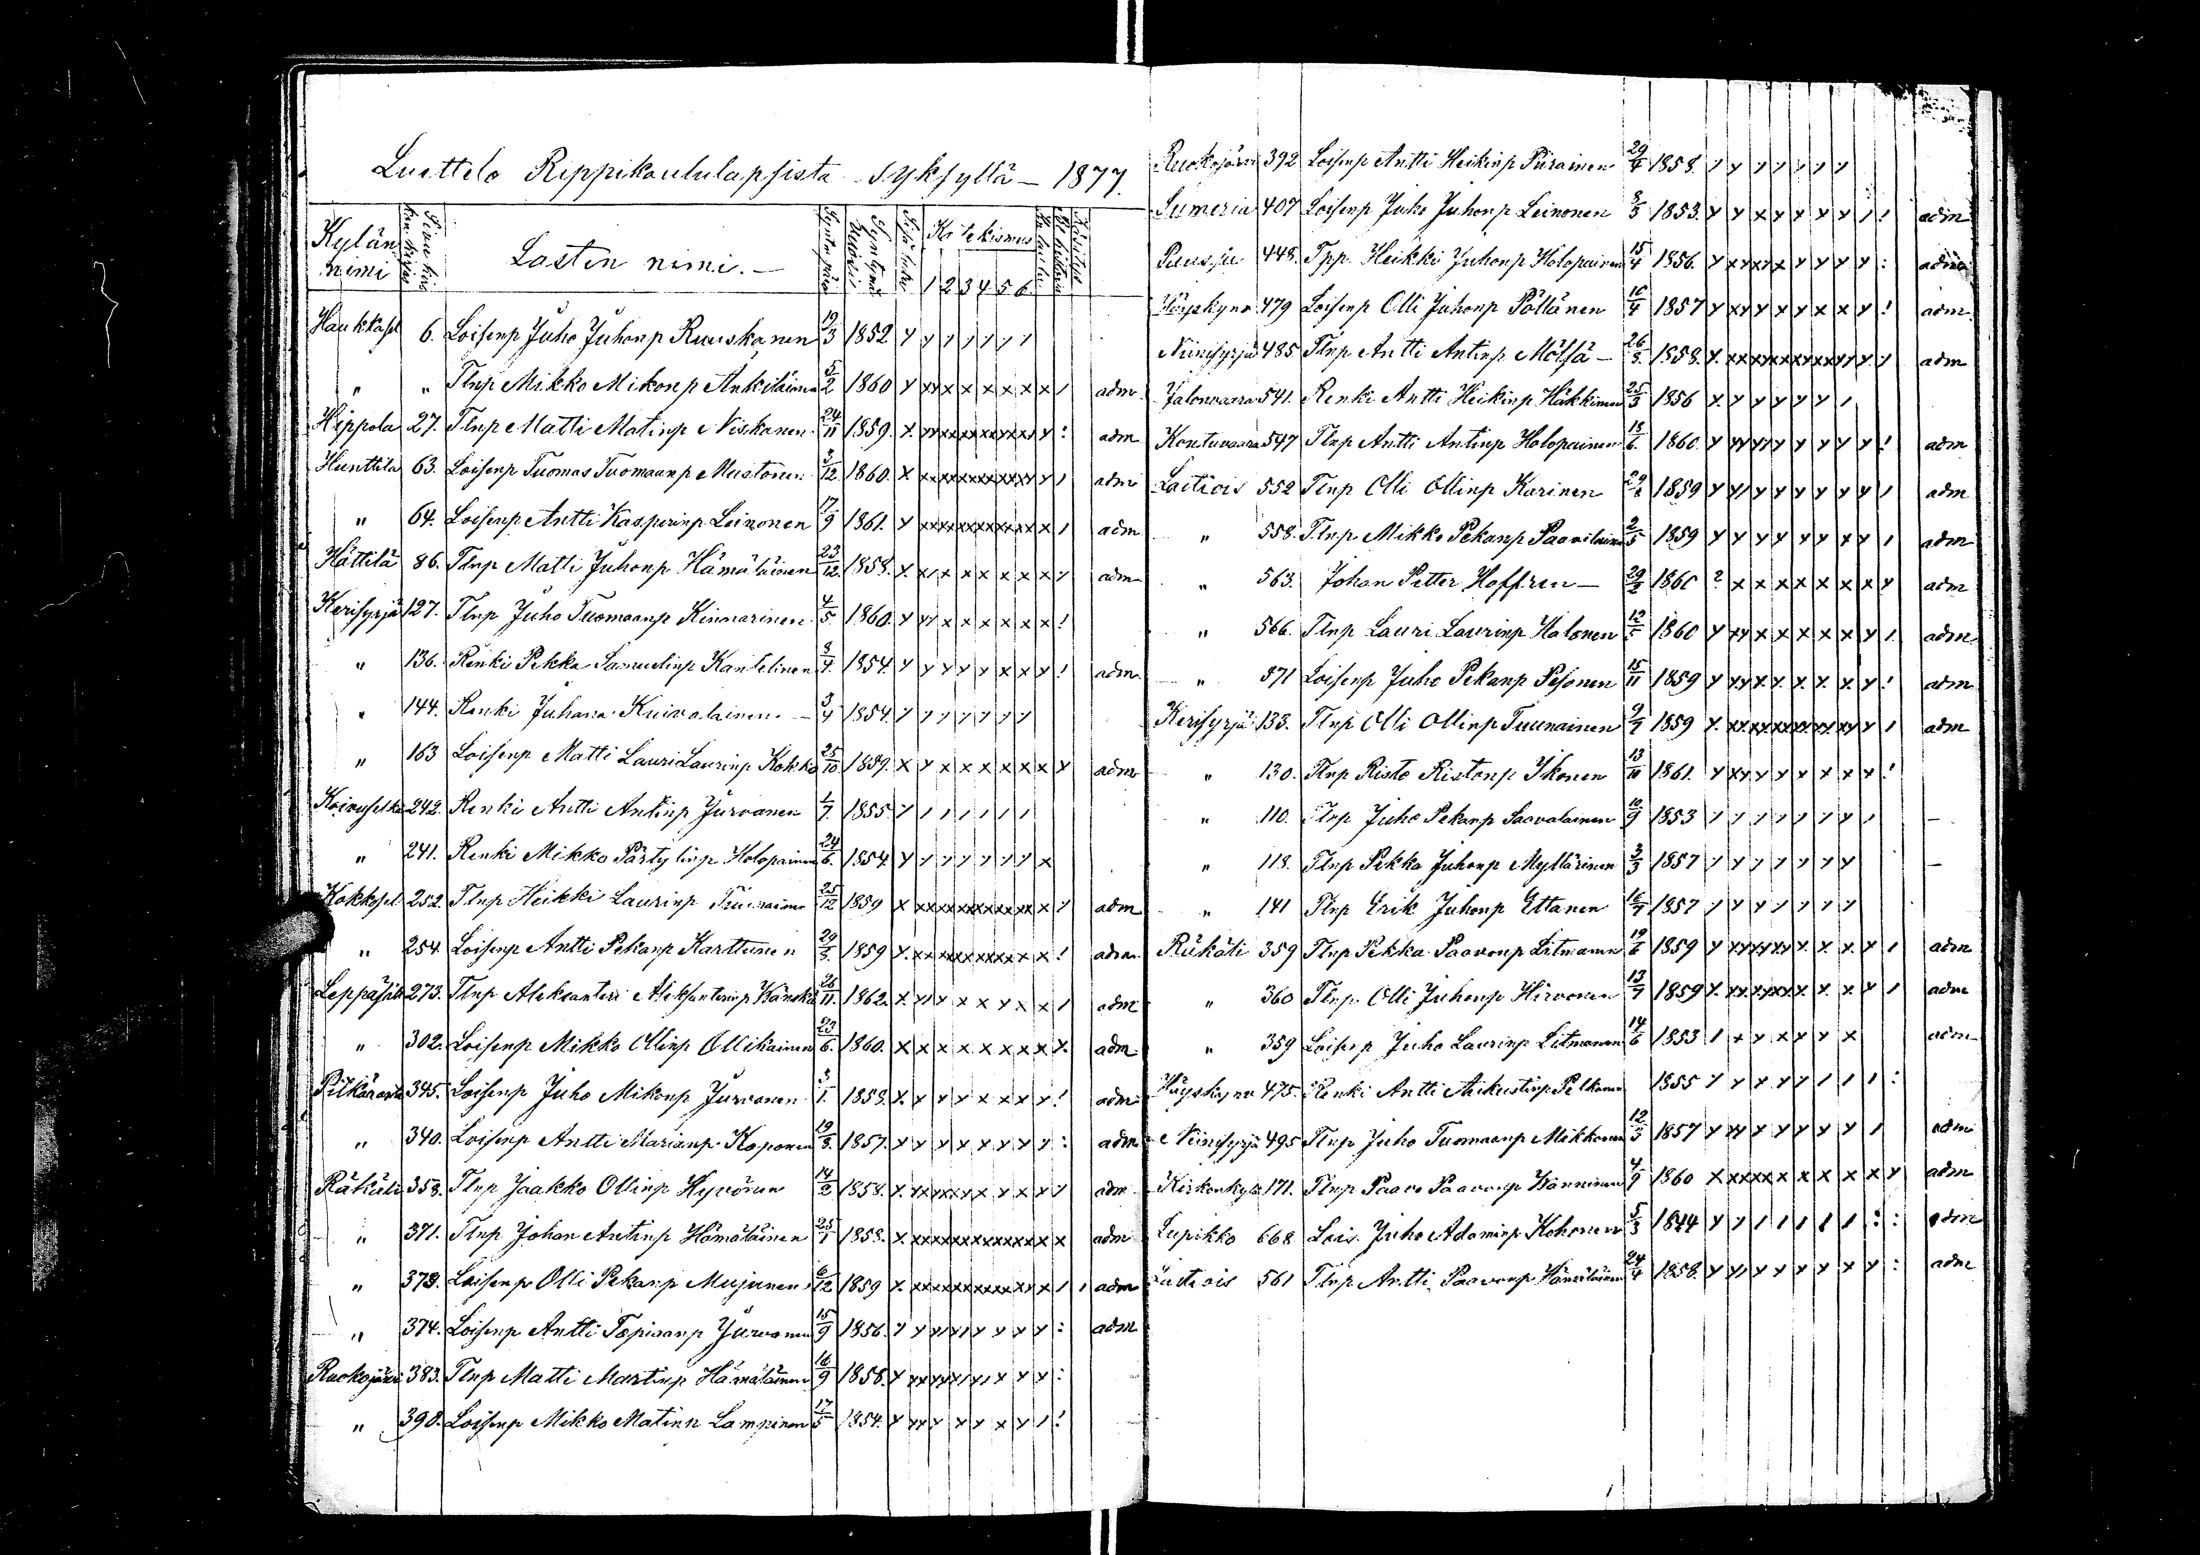 Luettelo Rippikoululapsista syksyllä - 1877.
Kylän nimi
Lasten nimi. -
Katekismus
1 2 3 4 5 6
Haukkasel 6. Loisenp Juho Juhonp Ruuskanen 19/3 1852
" " Tlnp Mikko Mikonp Ankiläinen 5/2 1860 adm
Hippola 27. Tlnp Matti Matinp Niskanen 24/11 1859. adm
Hunttila 63. Loisenp Tuomas Tuomaanp Mustonen 3/12 1860. adm
" 64. Loisenp Antti Kasperinp Leinonen 17/9 1861. adm
Hättilä 86. Tlnp Matti Juhonp Hämäläinen 23/12 1858. adm
Kerisyrjä 127. Tlnp Juho Tuomaanp Kinnarinen 4/5 1860.
" 136. Renki Pekka Samuelinp Kantelinen 8/4 1854. adm
" 144. Renki Juhana Kuivalainen - 3/4 1854.
" 163 Loisenp Matti Lauri Laurinp Kokko 25/10 1859. adm
Koivuselkä 242. Renki Antti Antinp Jurvanen 1/7 1855.
" 241. Renki Mikko Pärtylinp Holopainen 24/6 1854.
Kokkosel 252. Tlnp Heikki Laurinp 25/12 1859 adm
" 254 Loisenp Antti Pekanp Karttunen 29/3 1859 adm
Leppäsilt 273. Tlnp Aleksanteri Aleksanterinp Wänskä 26/11 1862. adm
" 302. Loisenp Mikko Ollinp Ollikainen 23/6 1860. adm
Pitkäranta 345. Loisenp Juho Mikonp Jurvanen 3/1 1858. adm
" 340. Loisenp Antti Marianp Koponen 19/8 1857. adm
Räkäli 358. Tlnp Jaakko Ollinp Hyvönen 14/2 1858. adm
" 371. Tlnp Johan Antinp Hämäläinen 25/1 1858. adm
" 373. Loisenp Olli Pekanp Mujunen 6/12 1859 adm
" 374. Loisenp Antti Topisanp Jurvanen 15/9 1856. adm
Ruokojärvi 383. Tlnp Matti Martinp Hämäläinen 16/9 1858.
" 390. Loisenp Mikko Matinp Lampinen 17/5 1854.
Ruokojärvi 392 Loisenp Antti Heikinp Piirainen 29/4 1858.
Sumeria 407 Loisenp Juho Juhonp Leinonen 8/3 1853. adm
Puusju 448. Tpp. Heikki Juhonp Holopainen 15/4 1856. adm
Häyskynv 479 Loisenp Olli Juhonp Pöllänen 16/4 1857 adm.
Niinisyrjä 485. Tlnp Antti Antinp Mölsä - 26/3 1858. adm
Jalonvaara 541. Renki Antti Heikinp Häkkinen 25/3 1856
Kontuvaara 547 Tlnp Antti Antinp Holopainen 18/6 1860. adm
Läskois 552 Tlnp Olli Ollinp Karinen 1859 adm
" 558. Tlnp Mikko Pekanp Paavilainen 2/5 1859 adm
" 563. Johan Petter Hoffren - 29/2 1860 ? adm
" 566. Tlnp Lauri Laurinp Halonen 12/5 1860 adm
" 571 Loisenp Juho Pekanp Pesonen 15/11 1859 adm
Kerisyrjä 133. Tlnp Olli Ollinp Tuunainen 9/7 1859 adm
" 130. Tlnp Risto Ristonp Ikonen 13/10 1861.
" 110. Tlnp Juho Pekanp Saavalainen 10/9 1853 -
" 118. Tlnp Pekka Juhonp Myllärinen 3/3 1857 -
" 141 Tlnp Erik Juhonp Ettanen 16/7 1857
Räkäli 359 Tlnp Pekka Paavonp Litmanen 19/6 1859 adm
" 360 Tlnp. Olli Juhonp Hirvonen 13/7 1859 adm
" 359 Loisenp Juho Laurinp Litmanen 14/6 1853 adm
Häyskynv 475. Renki Antti Aukustinp Pelkonen 1855
Niinisyrjä 495 Tlnp Juho Tuomaanp Mikkonen 12/3 1857 adm
Kirkonkylä 171. Tlnp Paavo Paavonp Wänninen 4/9 1860 adm
Lupikko 668 Lois. Juho Adaminp Kohonen 5/3 1844 adm
Läskois 561 Tlnp Antti Paavonp Hämäläinen 24/4 1858. adm